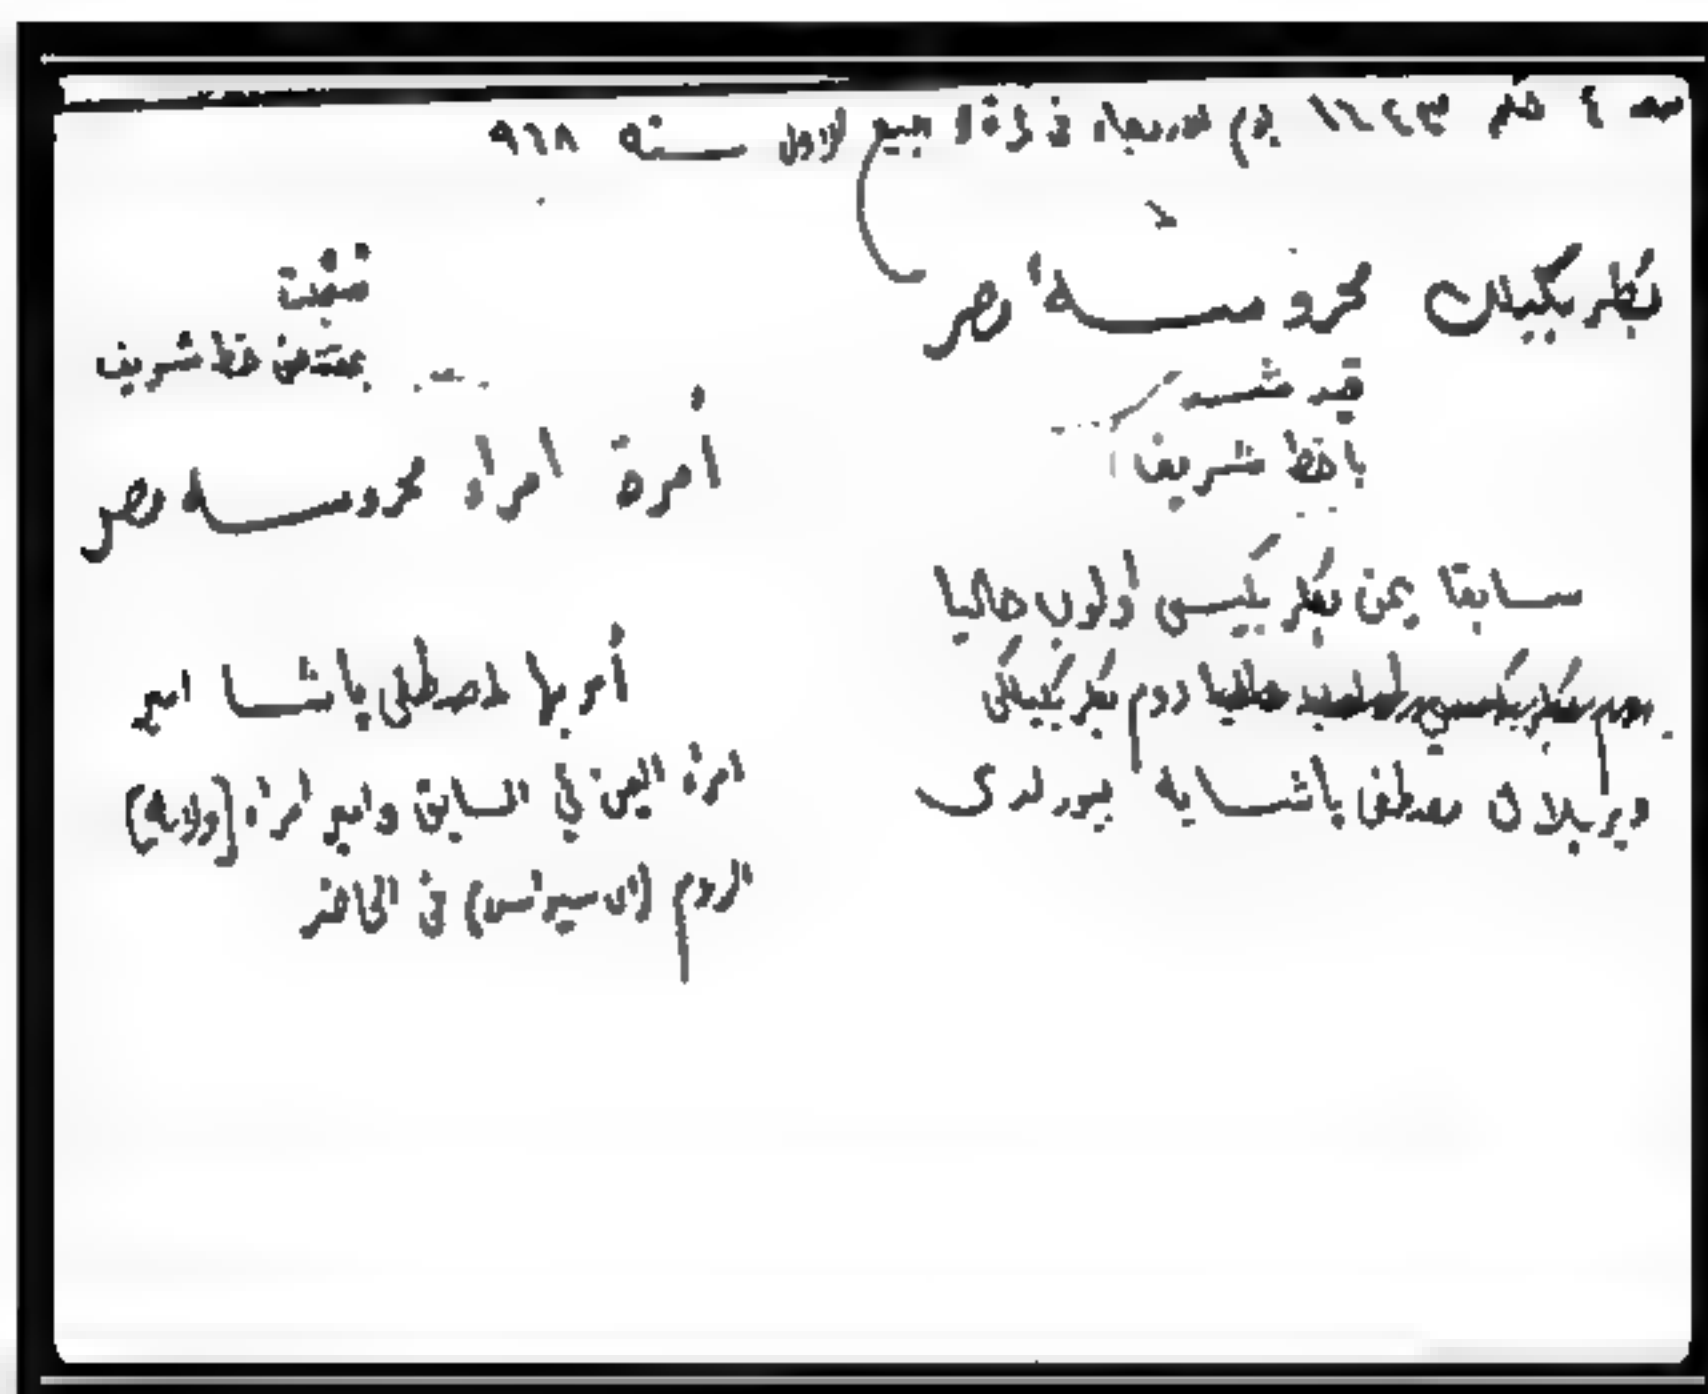 حكم ١١٤٣ يوم الاربعاء في غرة ربيع الاول سنه ٩٦٨
بكلربكيلك محروسهٔ مصر
قيد شد
با خط شريف
سابقا يمن بكلربكيسى اولوب حاليا
روم بكلربكيلكى
ويريلان مصطفى پاشايه بيورلدى
سجلت
بمقتضى خط شريف
أمرة امراء محروسه مصر
أمر بها لمصطفى باشا امير
امراء اليمن في السابق وامير امراء [ولاية]
الروم (اى سيواس) في الحاضر